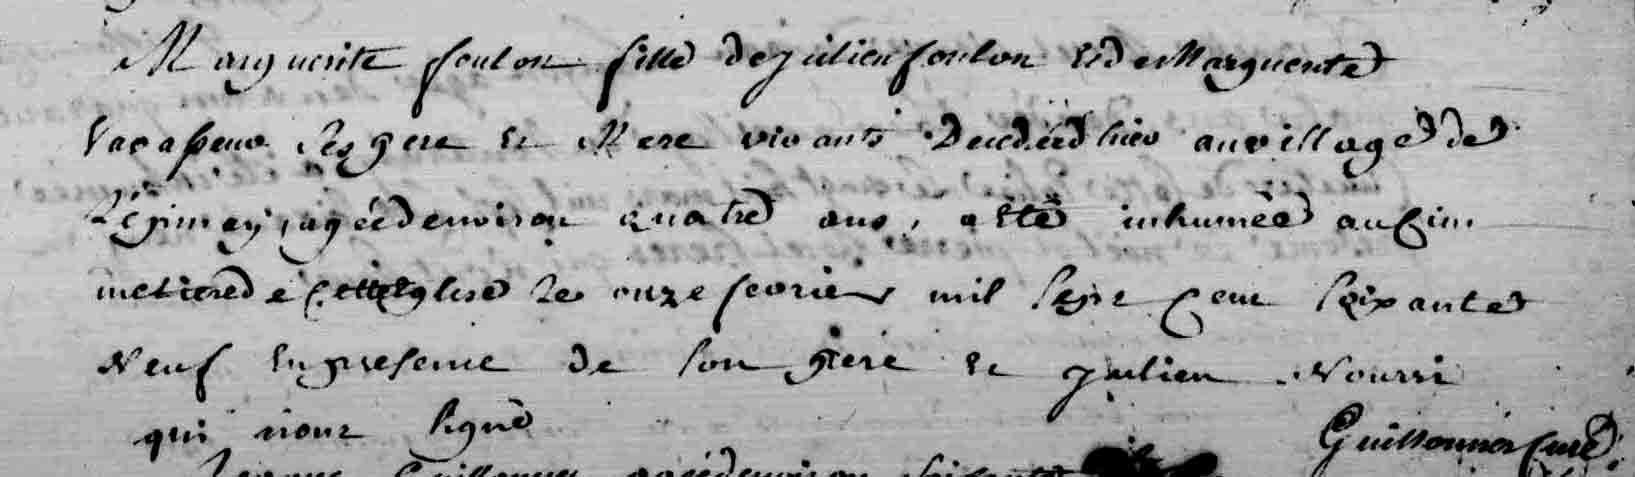 Marguerite foulon fille de julien foulon et de Marguerite
Vavasseur ses pere et Mere vivants decedéed hier au village de
L'épinay, agéed environ quatre ans, a été inhumée au cim
metiered e cette eglise le onze fevrier mil sept cent soixante
Neuf en presence de son pere et julien Nourri
qui n'ont signé
Guillonnier Curé
Guillonner agéed environ soixante